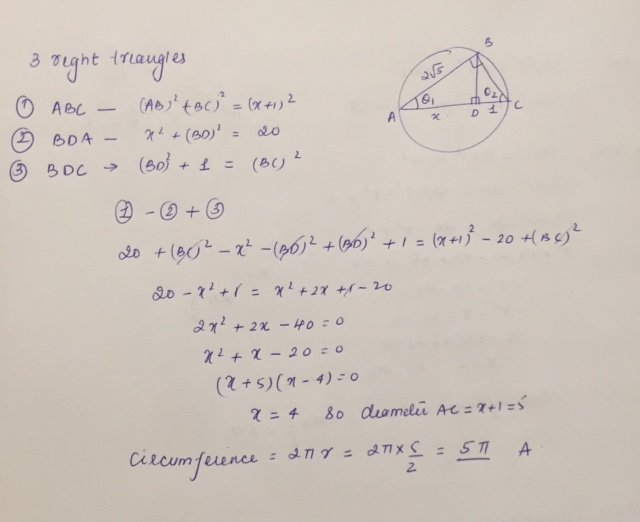 3 right triangles
① ABC — (AB)² + (BC)² = (x+1)²
② BDA — x² + (BD)² = 20
③ BDC → (BD)² + 1 = (BC)²
B
2√5
θ₁
θ₂
A
x
D
1
C
① - ② + ③
20 + (BC)² - x² - (BD)² + (BD)² + 1 = (x+1)² - 20 + (BC)²
20 - x² + 1 = x² + 2x + 1 - 20
2x² + 2x - 40 = 0
x² + x - 20 = 0
(x+5)(x-4) = 0
x = 4 so diameter AC = x+1 = 5
Circumference = 2πr = 2π × 5/2 = 5π A